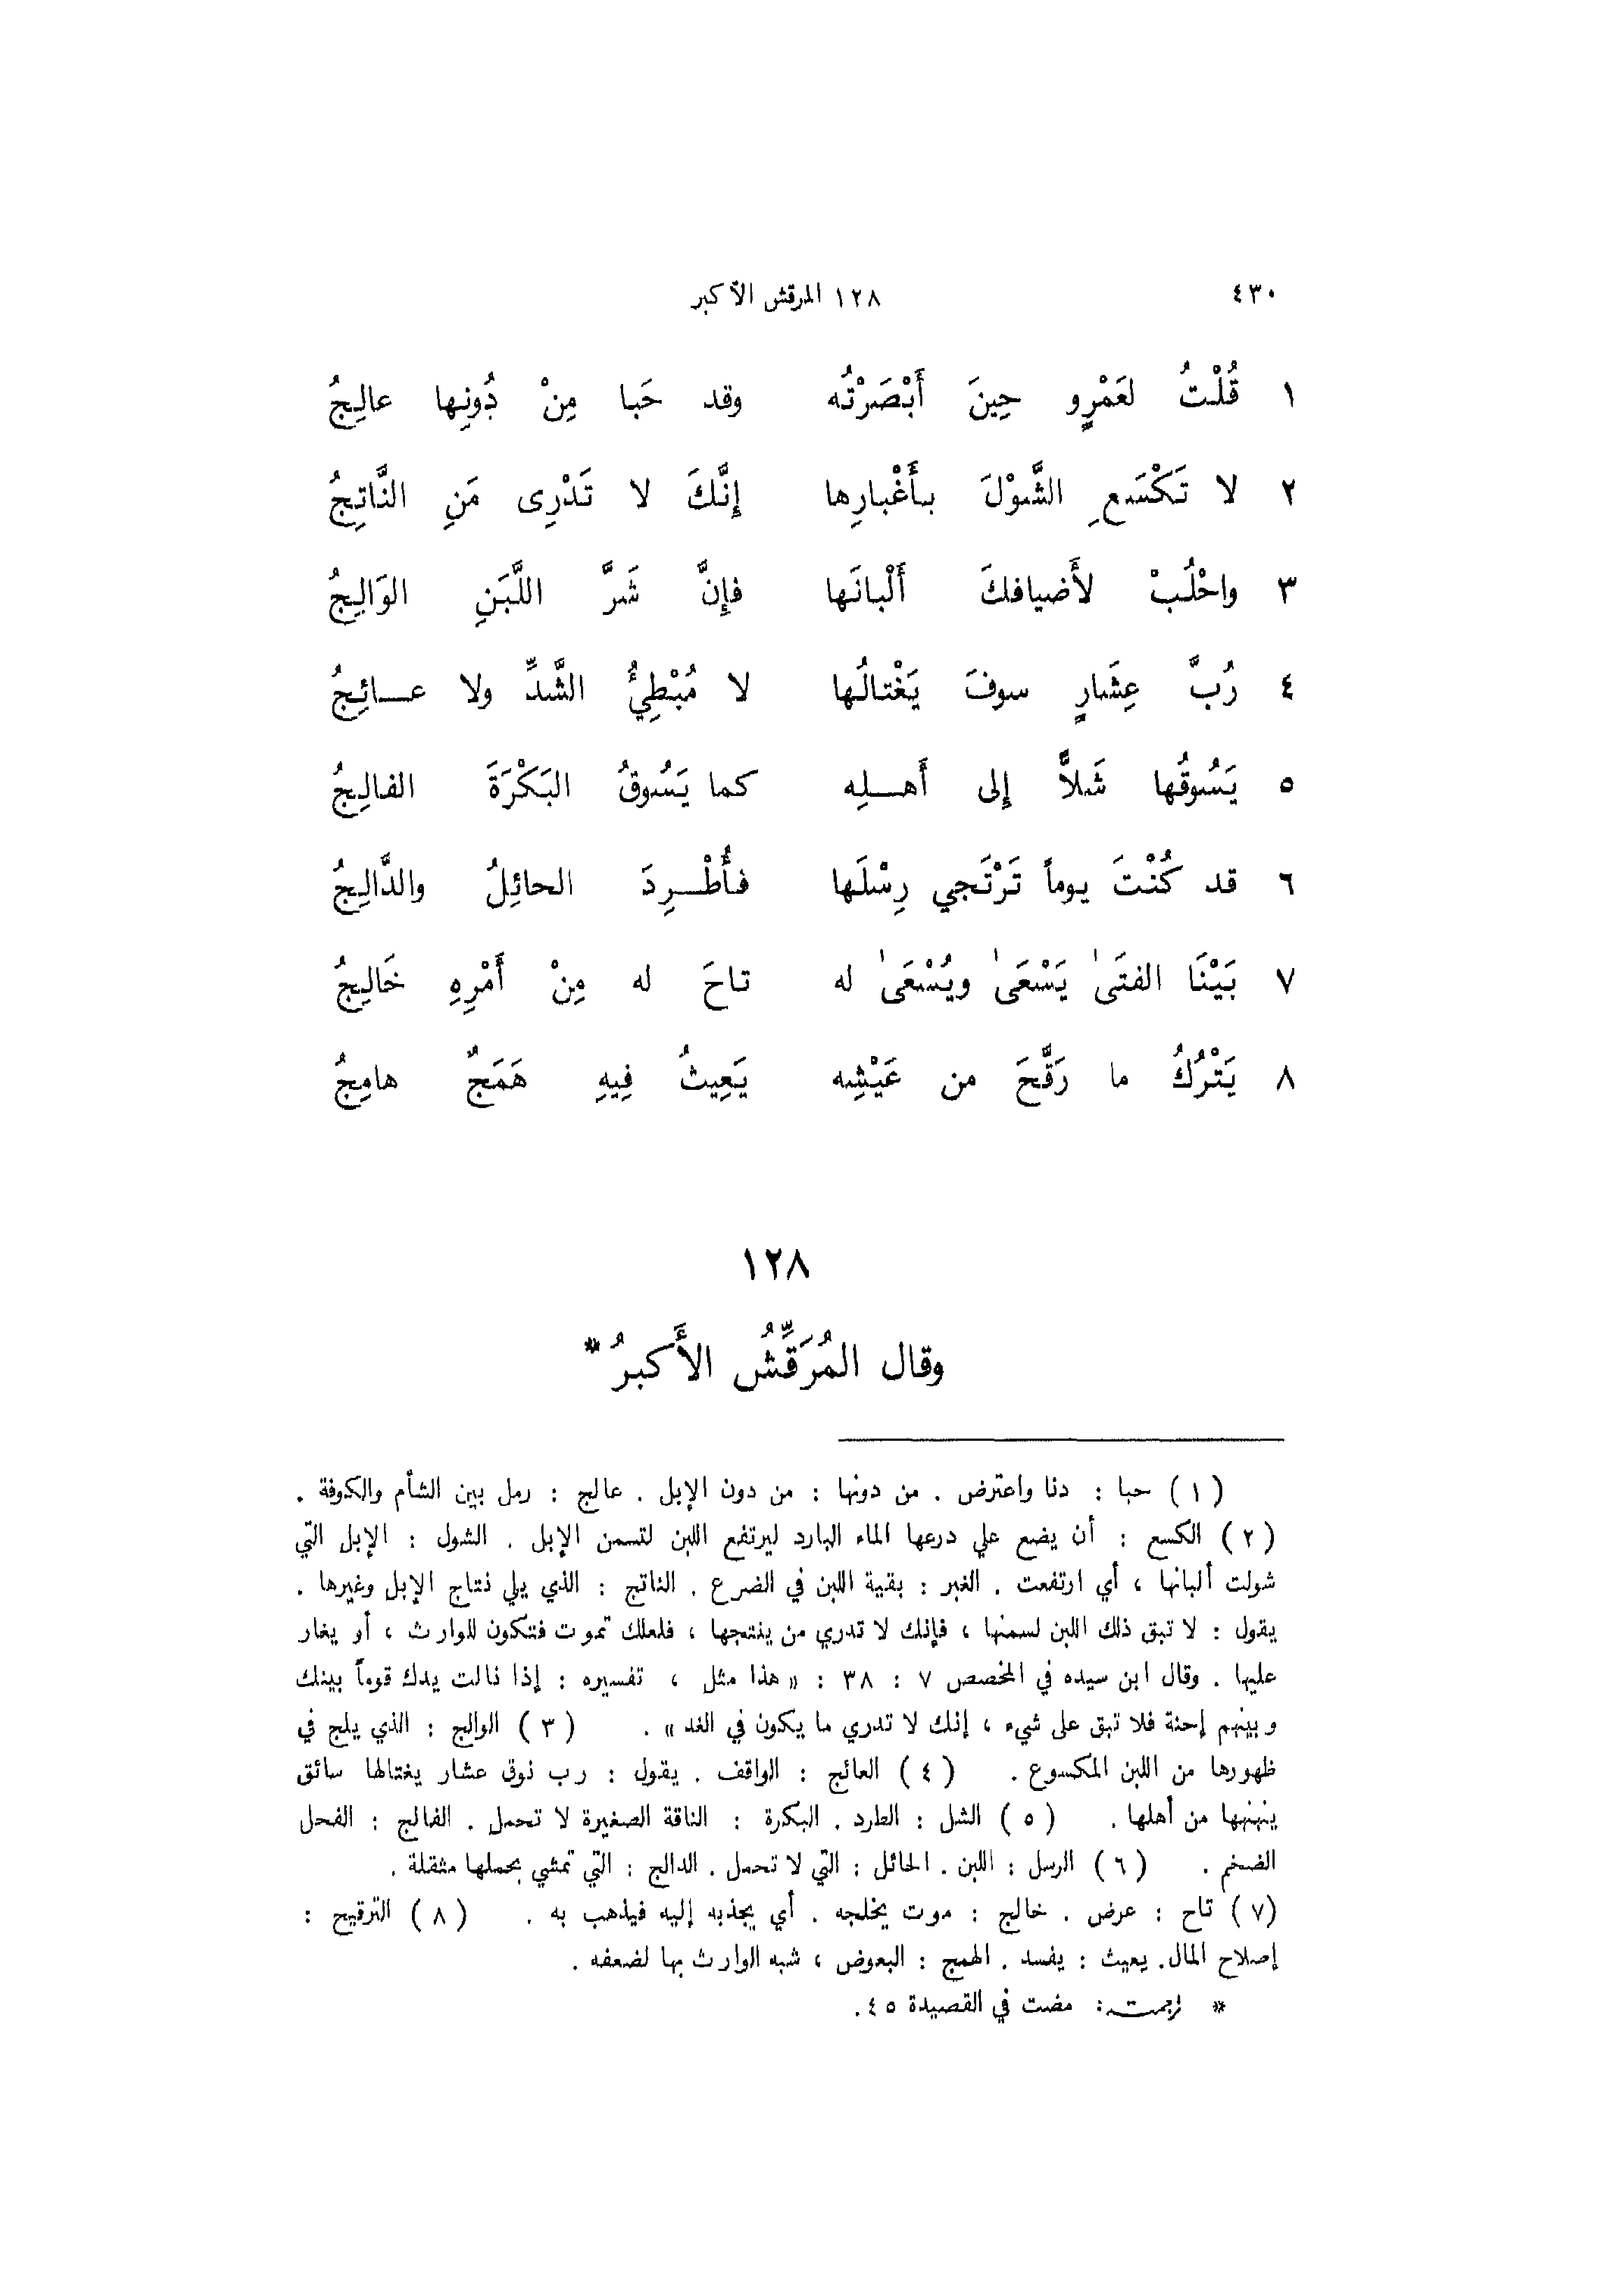 ٤٣٠ ١٢٨ المرقش الأكبر
١ قُلْتُ لعَمْرٍو حِينَ أَبْصَرْتُه وقد حَبا مِنْ دُونِها عالِجُ
٢ لا تَكْسَعِ الشَّوْلَ بأَغْبارِها إِنَّكَ لا تَدْرِى مَنِ النَّاتِجُ
٣ واحْلُبْ لأَضيافكَ أَلْبانَها فإِنَّ شَرَّ اللَّبَنِ الوَالِجُ
٤ رُبَّ عِشَارٍ سوفَ يَغْتالُها لا مُبْطِئُ الشَّدِّ ولا عـائِجُ
٥ يَسُوقُها شَلاًّ إِلى أَهـلِه كما يَسُوقُ البَكْرَةَ الفالِجُ
٦ قد كُنْتَ يوماً تَرْتَجي رِسْلَها فأُطْـرِدَ الحائِلُ والدَّالِجُ
٧ بَيْنَا الفتَىٰ يَسْعَىٰ ويُسْعَىٰ له تاحَ له مِنْ أَمْرِهِ خَالِجُ
٨ يَتْرُكُ ما رَقَّحَ من عَيْشِه يَعِيثُ فِيهِ هَمَجٌ هامِجُ
١٢٨
وقال المُرَقِّشُ الأَكبرُ *
( ١ ) حبا : دنا واعترض . من دونها : من دون الإبل . عالج : رمل بين الشأم والكوفة .
( ٢ ) الكسع : أن يضع علي درعها الماء البارد ليرتفع اللبن لتسمن الإبل . الشول : الإبل التي
شولت ألبانها ، أي ارتفعت . الغبر : بقية اللبن في الضرع . الناتج : الذي يلي نتاج الإبل وغيرها .
يقول : لا تبق ذلك اللبن لسمنها ، فإنك لا تدري من ينتجها ، فلعلك تموت فتكون للوارث ، أو يغار
عليها . وقال ابن سيده في المخصص ٧ : ٣٨ : « هذا مثل ، تفسيره : إذا نالت يدك قوماً بينك
وبينهم إحنة فلا تبق على شيء ، إنك لا تدري ما يكون في الغد » . ( ٣ ) الوالج : الذي يلج في
ظهورها من اللبن المكسوع . ( ٤ ) العائج : الواقف . يقول : رب نوق عشار يغتالها سائق
ينهنها من أهلها . ( ٥ ) الشل : الطرد . البكرة : الناقة الصغيرة لا تحمل . الفالج : الفحل
الضخم . ( ٦ ) الرسل : اللبن . الحائل : التي لا تحمل . الدالج : التي تمشي بحملها مثقلة .
(٧ ) تاح : عرض . خالج : موت يخلجه . أي يجذبه إليه فيذهب به . ( ٨ ) الترقيح :
إصلاح المال. يعيث : يفسد . الهمج : البعوض ، شبه الوارث بها لضعفه .
* ترجمته: مضت في القصيدة ٤٥.